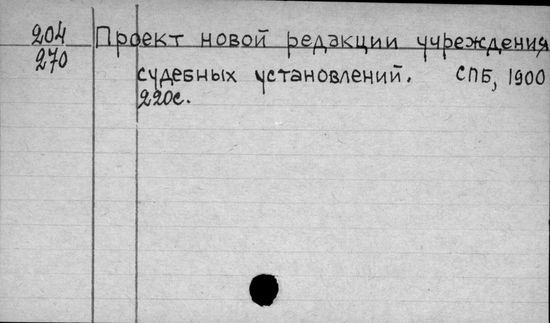 204 Проект новой редакции учреждения
270
судебных установлений. СПБ, 1900
220с.